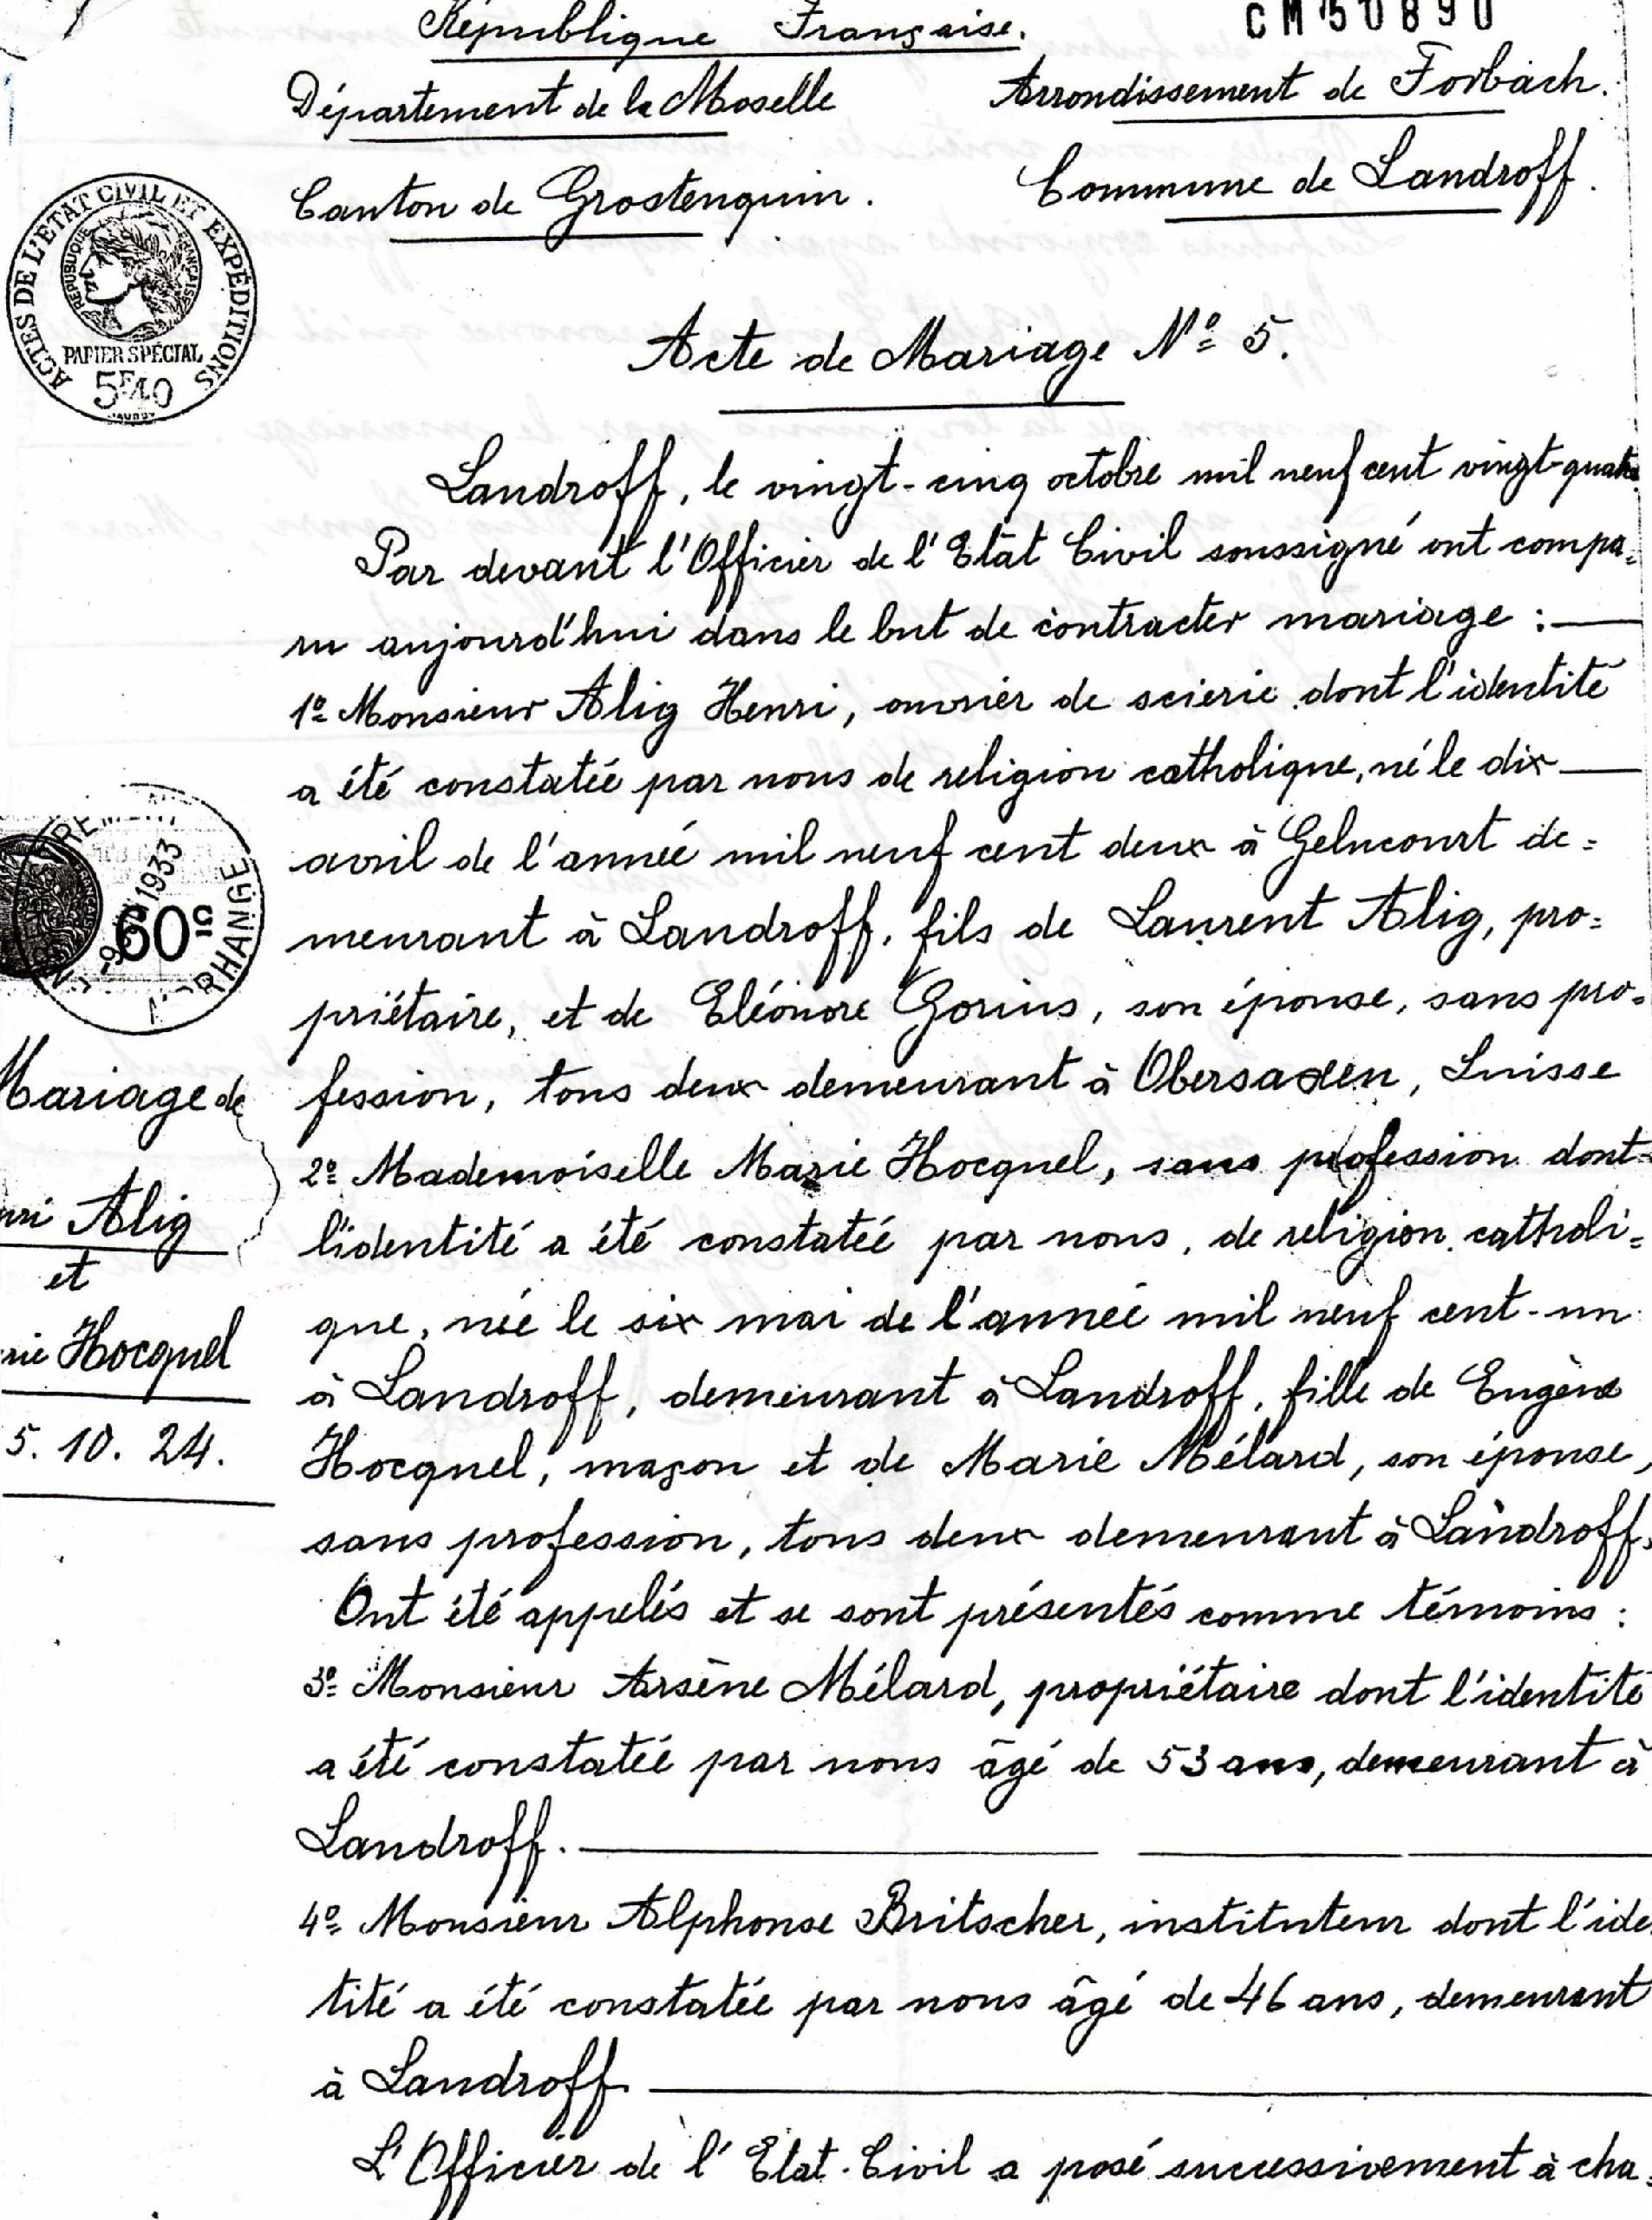 République Française.
CM50890
Département de la Moselle
Arrondissement de Forbach.
Canton de Grostenquin.
Commune de Landroff.
ACTES DE L'ETAT CIVIL ET EXPÉDITIONS
REPUBLIQUE FRANCAISE
PAPIER SPÉCIAL
5F40
Acte de Mariage Nº 5.
Landroff, le vingt-cinq octobre mil neuf cent vingt-quatre
Par devant l'Officier de l'Etat Civil soussigné ont compa=
ru aujourd'hui dans le but de contracter mariage :
1º Monsieur Alig Henri, ouvrier de scierie dont l'identité
a été constatée par nous de religion catholique, né le dix
avril de l'année mil neuf cent deux à Gelucourt de=
meurant à Landroff, fils de Laurent Alig, pro=
priétaire, et de Eléonore Gorius, son épouse, sans pro=
fession, tous deux demeurant à Obersaxen, Suisse
2º Mademoiselle Marie Hocquel, sans profession dont
l'identité a été constatée par nous, de religion catholi=
que, née le six mai de l'année mil neuf cent-un
à Landroff, demeurant à Landroff, fille de Eugène
Hocquel, maçon et de Marie Mélard, son épouse,
sans profession, tous deux demeurant à Landroff.
Ont été appelés et se sont présentés comme témoins :
3º Monsieur Arsène Mélard, propriétaire dont l'identité
a été constatée par nous âgé de 53 ans, demeurant à
Landroff.
4º Monsieur Alphonse Britscher, instituteur dont l'ide
tité a été constatée par nous âgé de 46 ans, demeurant
à Landroff
L'Officier de l'Etat-Civil a posé successivement à cha=
1933
60c
RHANGE
Mariage de
nri Alig
et
rie Hocquel
5. 10. 24.